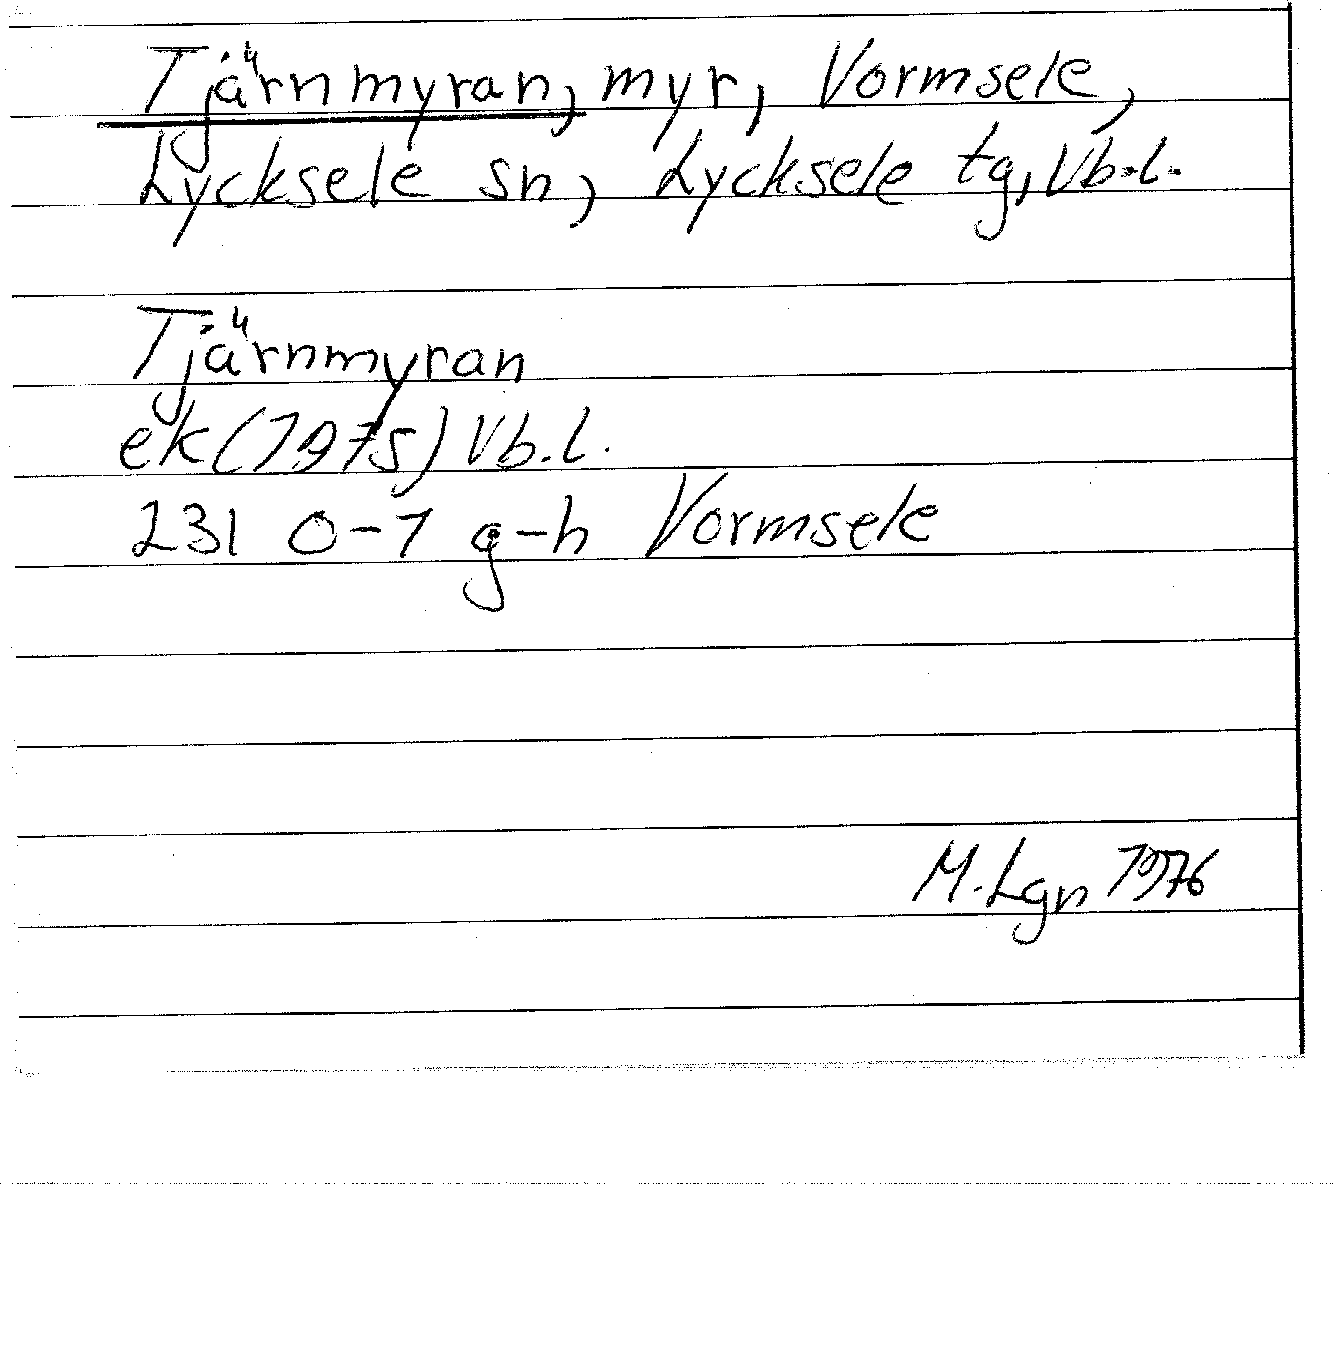 Tjärnmyran, myr, Vormsele,
Lycksele sn, Lycksele tg, Vb.l.
Tjärnmyran
ek (1975) Vb.l.
231 0-1 g-h Vormsele
M. Lgn 1976